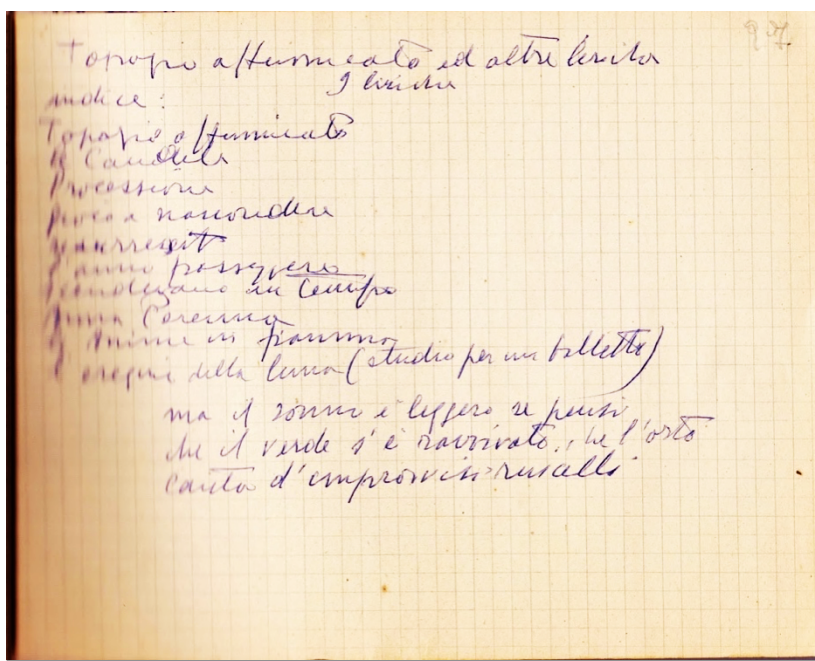 97.
Topazio affumicato ed altre liriche
9 liriche
indice:
Topazio affumicato
Le Candele
Processione
gioco a nascondere
L'anno passeggero
un tempo
Anna Perenna
Anime in fiamma
origini della luna (studio per un balletto)
ma il sonno è leggero se pensi
che il verde s'è ravvivato, che l'orto
canta d'improvvisi ruscelli